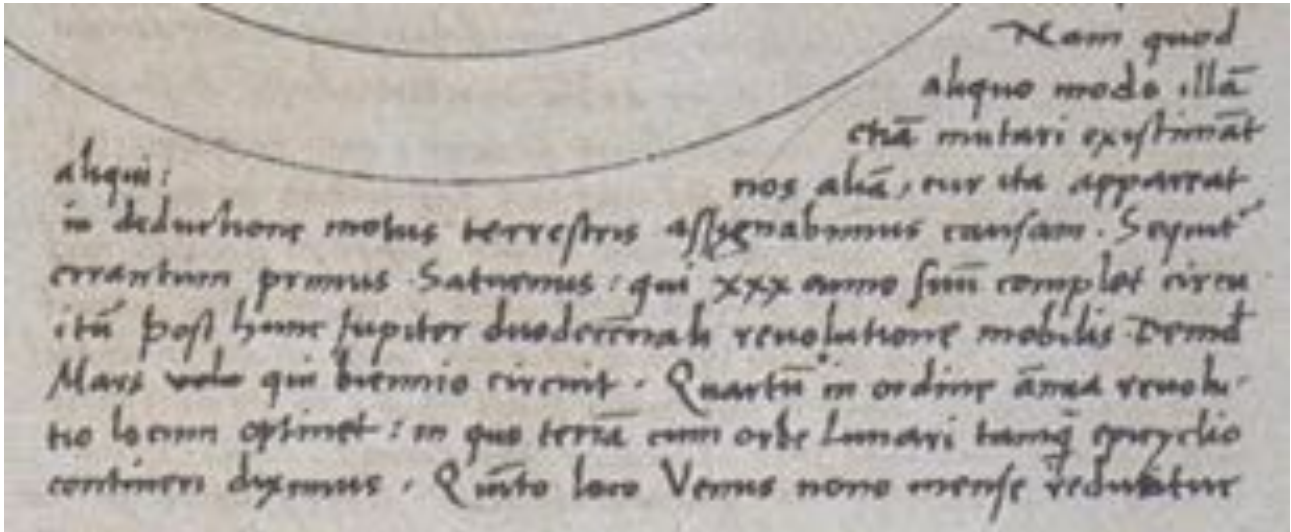 Nam quod
aliquo modo illā
etiā mutari existimāt
aliqui: nos aliā, cur ita appareat
in deductione motus terrestris assignabimus causam. Sequit᷑
errantium primus Saturnus: qui xxx anno suū complet circu
itū post hunc Jupiter duodecēnali revolutione mobilis Deind
Mars qui biennio circuit. Quartū in ordine ānua revolu-
tio locum optinet: in quo terrā cum orbe Lunari tamq̄ epicyclio
contineri diximus. Quīto loco Venus nono mense reducitur